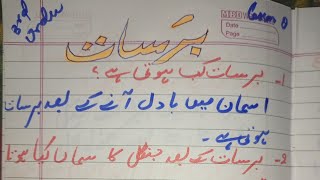 3rd
Order
Lesson 8
Date
Page
برسات
1- برسات کیا ہوتی ہے؟
اسمان میں بادل آنے کے بعد برسات
ہوتی ہے۔
2- برسات کے بعد جنگل کا سماں کیا ہوتا